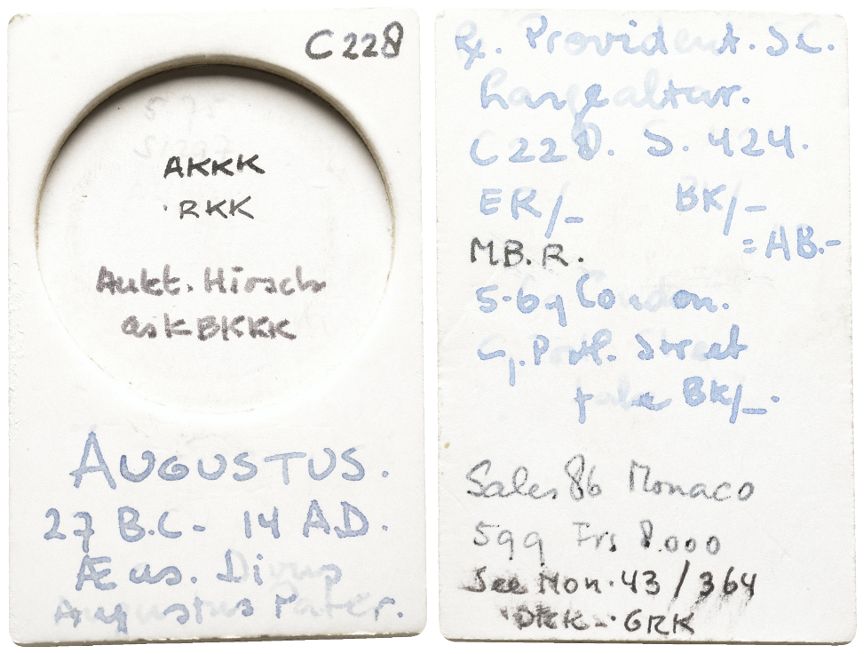 C 228
AKKK
RKK
Aukt. Hirsch
ask BKKK
AUGUSTUS.
27 B.C - 14 A.D.
Æ as. Divus
Augustus Pater.
Rx. Provident. S C.
Large altar.
C 228. S. 424.
ER/- BK/-
= AB.-
M.B.R.
5-69 London.
G. Portl. Street
BK/-.
Sales 86 Monaco
599 Frs 8.000
See Mon. 43 / 364
DKK - GRK